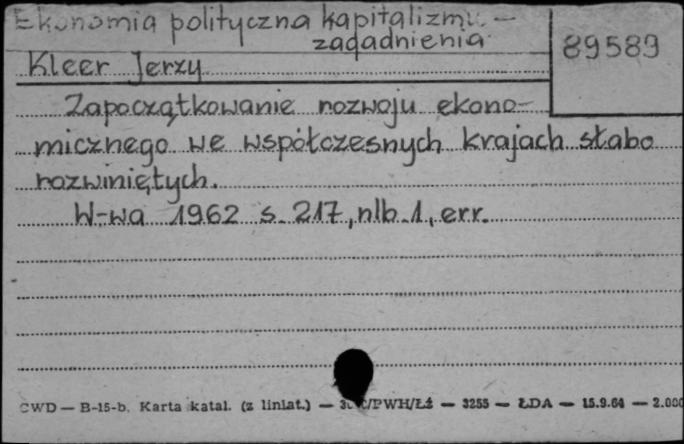 Ekonomia polityczna kapitalizmu –
zagadnienia
89589
Kleer Jerzy
Zapoczątkowanie rozwoju ekono-
micznego we współczesnych krajach słabo
rozwiniętych.
W-wa 1962 s. 217, nlb. 1, err.
CWD — B-15-b. Karta katal. (z liniat.) — /PWH/Łż — 3255 — ŁDA — 15.9.64 — 2.000